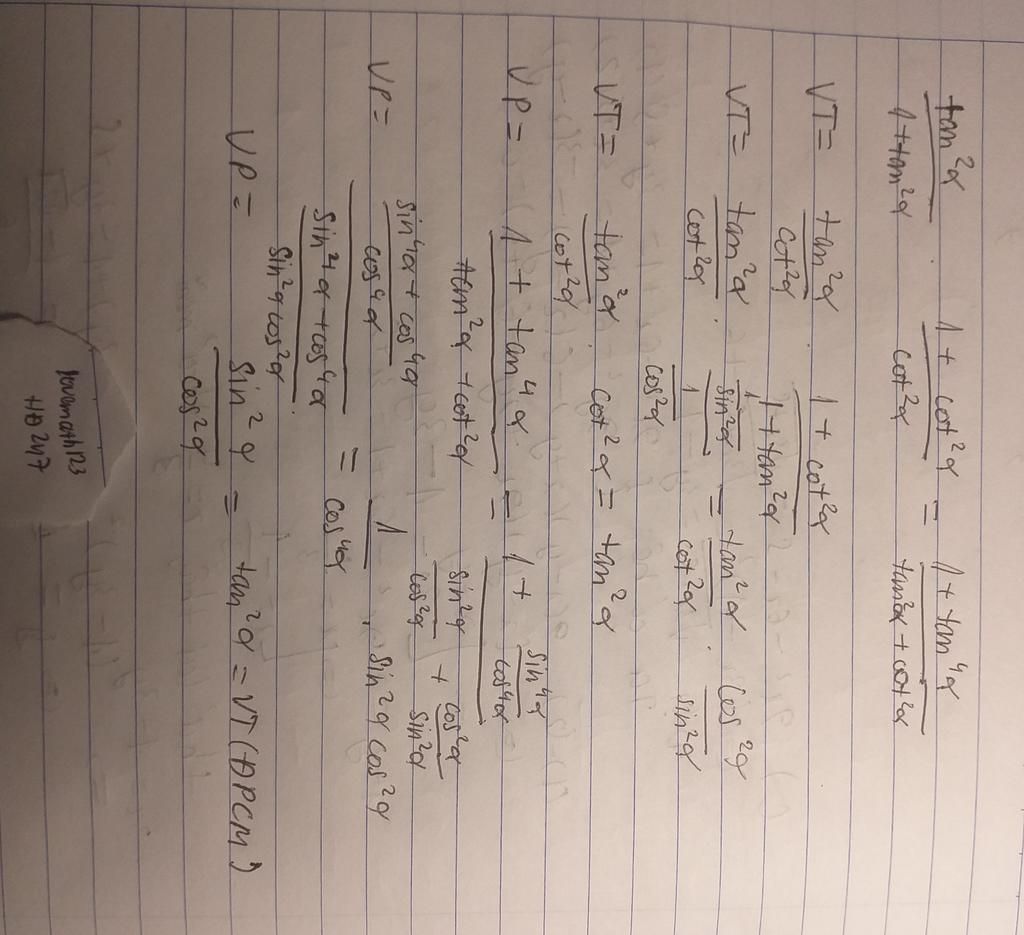 tan²α / 1+tan²α . 1 + cot²α / cot²α = 1 + tan⁴α / tan²α + cot²α
VT = tan²α / cot²α . 1 + cot²α / 1 + tan²α
VT = tan²α / cot²α . 1/sin²α / 1/cos²α = tan²α / cot²α . cos²α / sin²α
VT = tan²α / cot²α . cot²α = tan²α
VP = 1 + tan⁴α / tan²α + cot²α = 1 + sin⁴α/cos⁴α / sin²α/cos²α + cos²α/sin²α
VP = sin⁴α + cos⁴α/cos⁴α / sin⁴α + cos⁴α/sin²α cos²α = 1/cos⁴α . sin²α cos²α
VP = sin²α / cos²α = tan²α = VT (ĐPCM)
lovemath123
HĐ 247